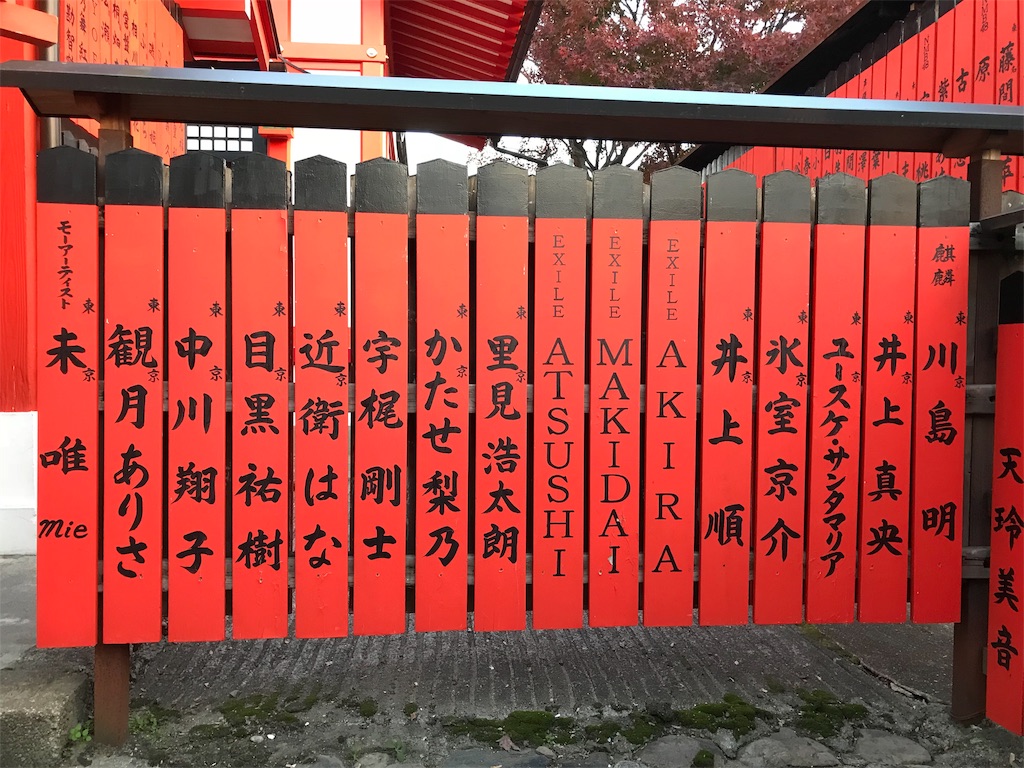 天玲美音
麒麟 東京 川島 明
東京 井上 真央
東京 ユースケ・サンタマリア
東京 氷室 京介
東京 井上 順
EXILE AKIRA
EXILE MAKIDAI
EXILE ATSUSHI
東京 里見 浩太朗
東京 かたせ 梨乃
東京 宇梶 剛士
東京 近衛 はな
東京 目黒 祐樹
東京 中川 翔子
東京 観月 ありさ
モーアーティスト 東京 未 唯 Mie
藤間
原
古